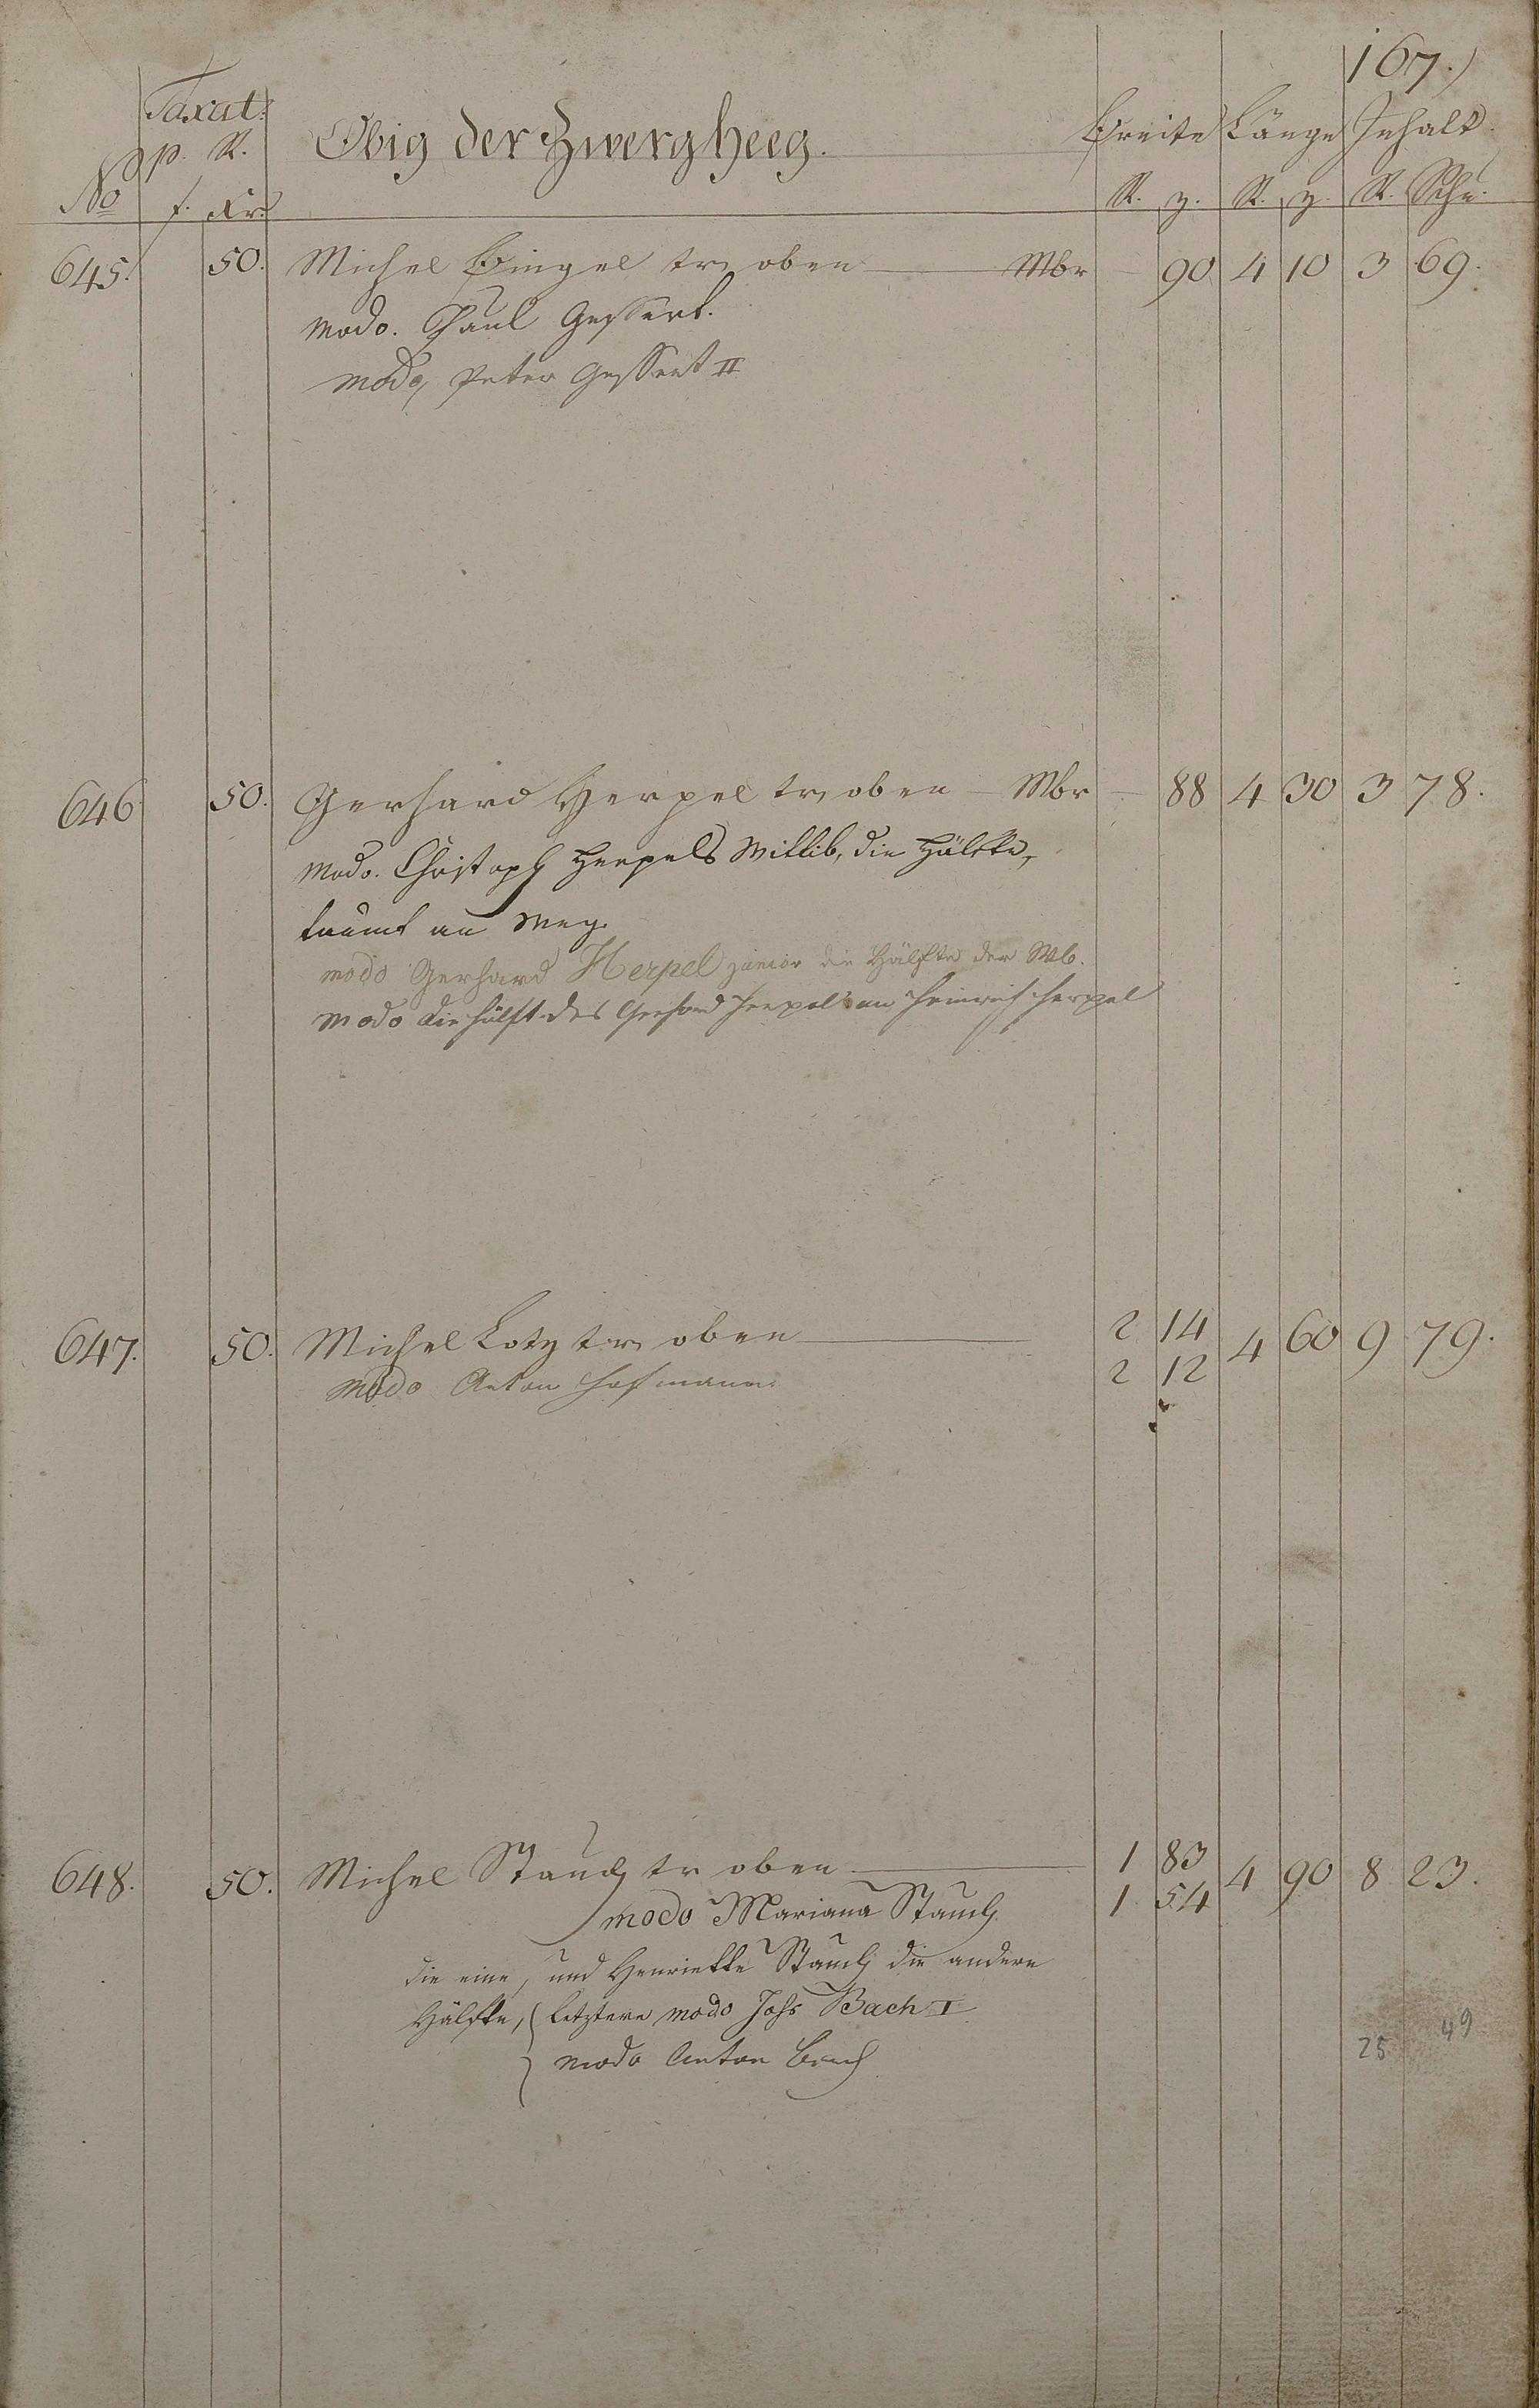 167.)
Taxat: Obig der Zwergheeg. Breite Länge Inhalt.
p. R.
No f. Xr. R. z. R. z. R. Schu.
645. 50. Michel Bingel tr. oben Mbr — 90 4 10 3 69.
modo. Paul Gessert.
modo, Peter Gessert II
646 50. Gerhard Herpel tr. oben — Mbr — 88 4 30 3 78.
modo. Christoph Herpels Wittib, die Hälfte,
am Weg.
modo Gerhard Herpel junior die Hälfte der Mb.
modo die Hälft des Gerhard Herpel an Heinrich Herpel
647. 50. Michel Lotz tr. oben 2 14 4 60 9 79.
modo Anton Hofmann. 2 12
648. 50. Michel Stauch tr oben 1 83 4 90 8 23.
modo Mariana Stauch 1 54
die eine, und Henriette Stauch die andere
Hälfte, (letztere modo Johs Bach I
modo Anton Bach
25 49